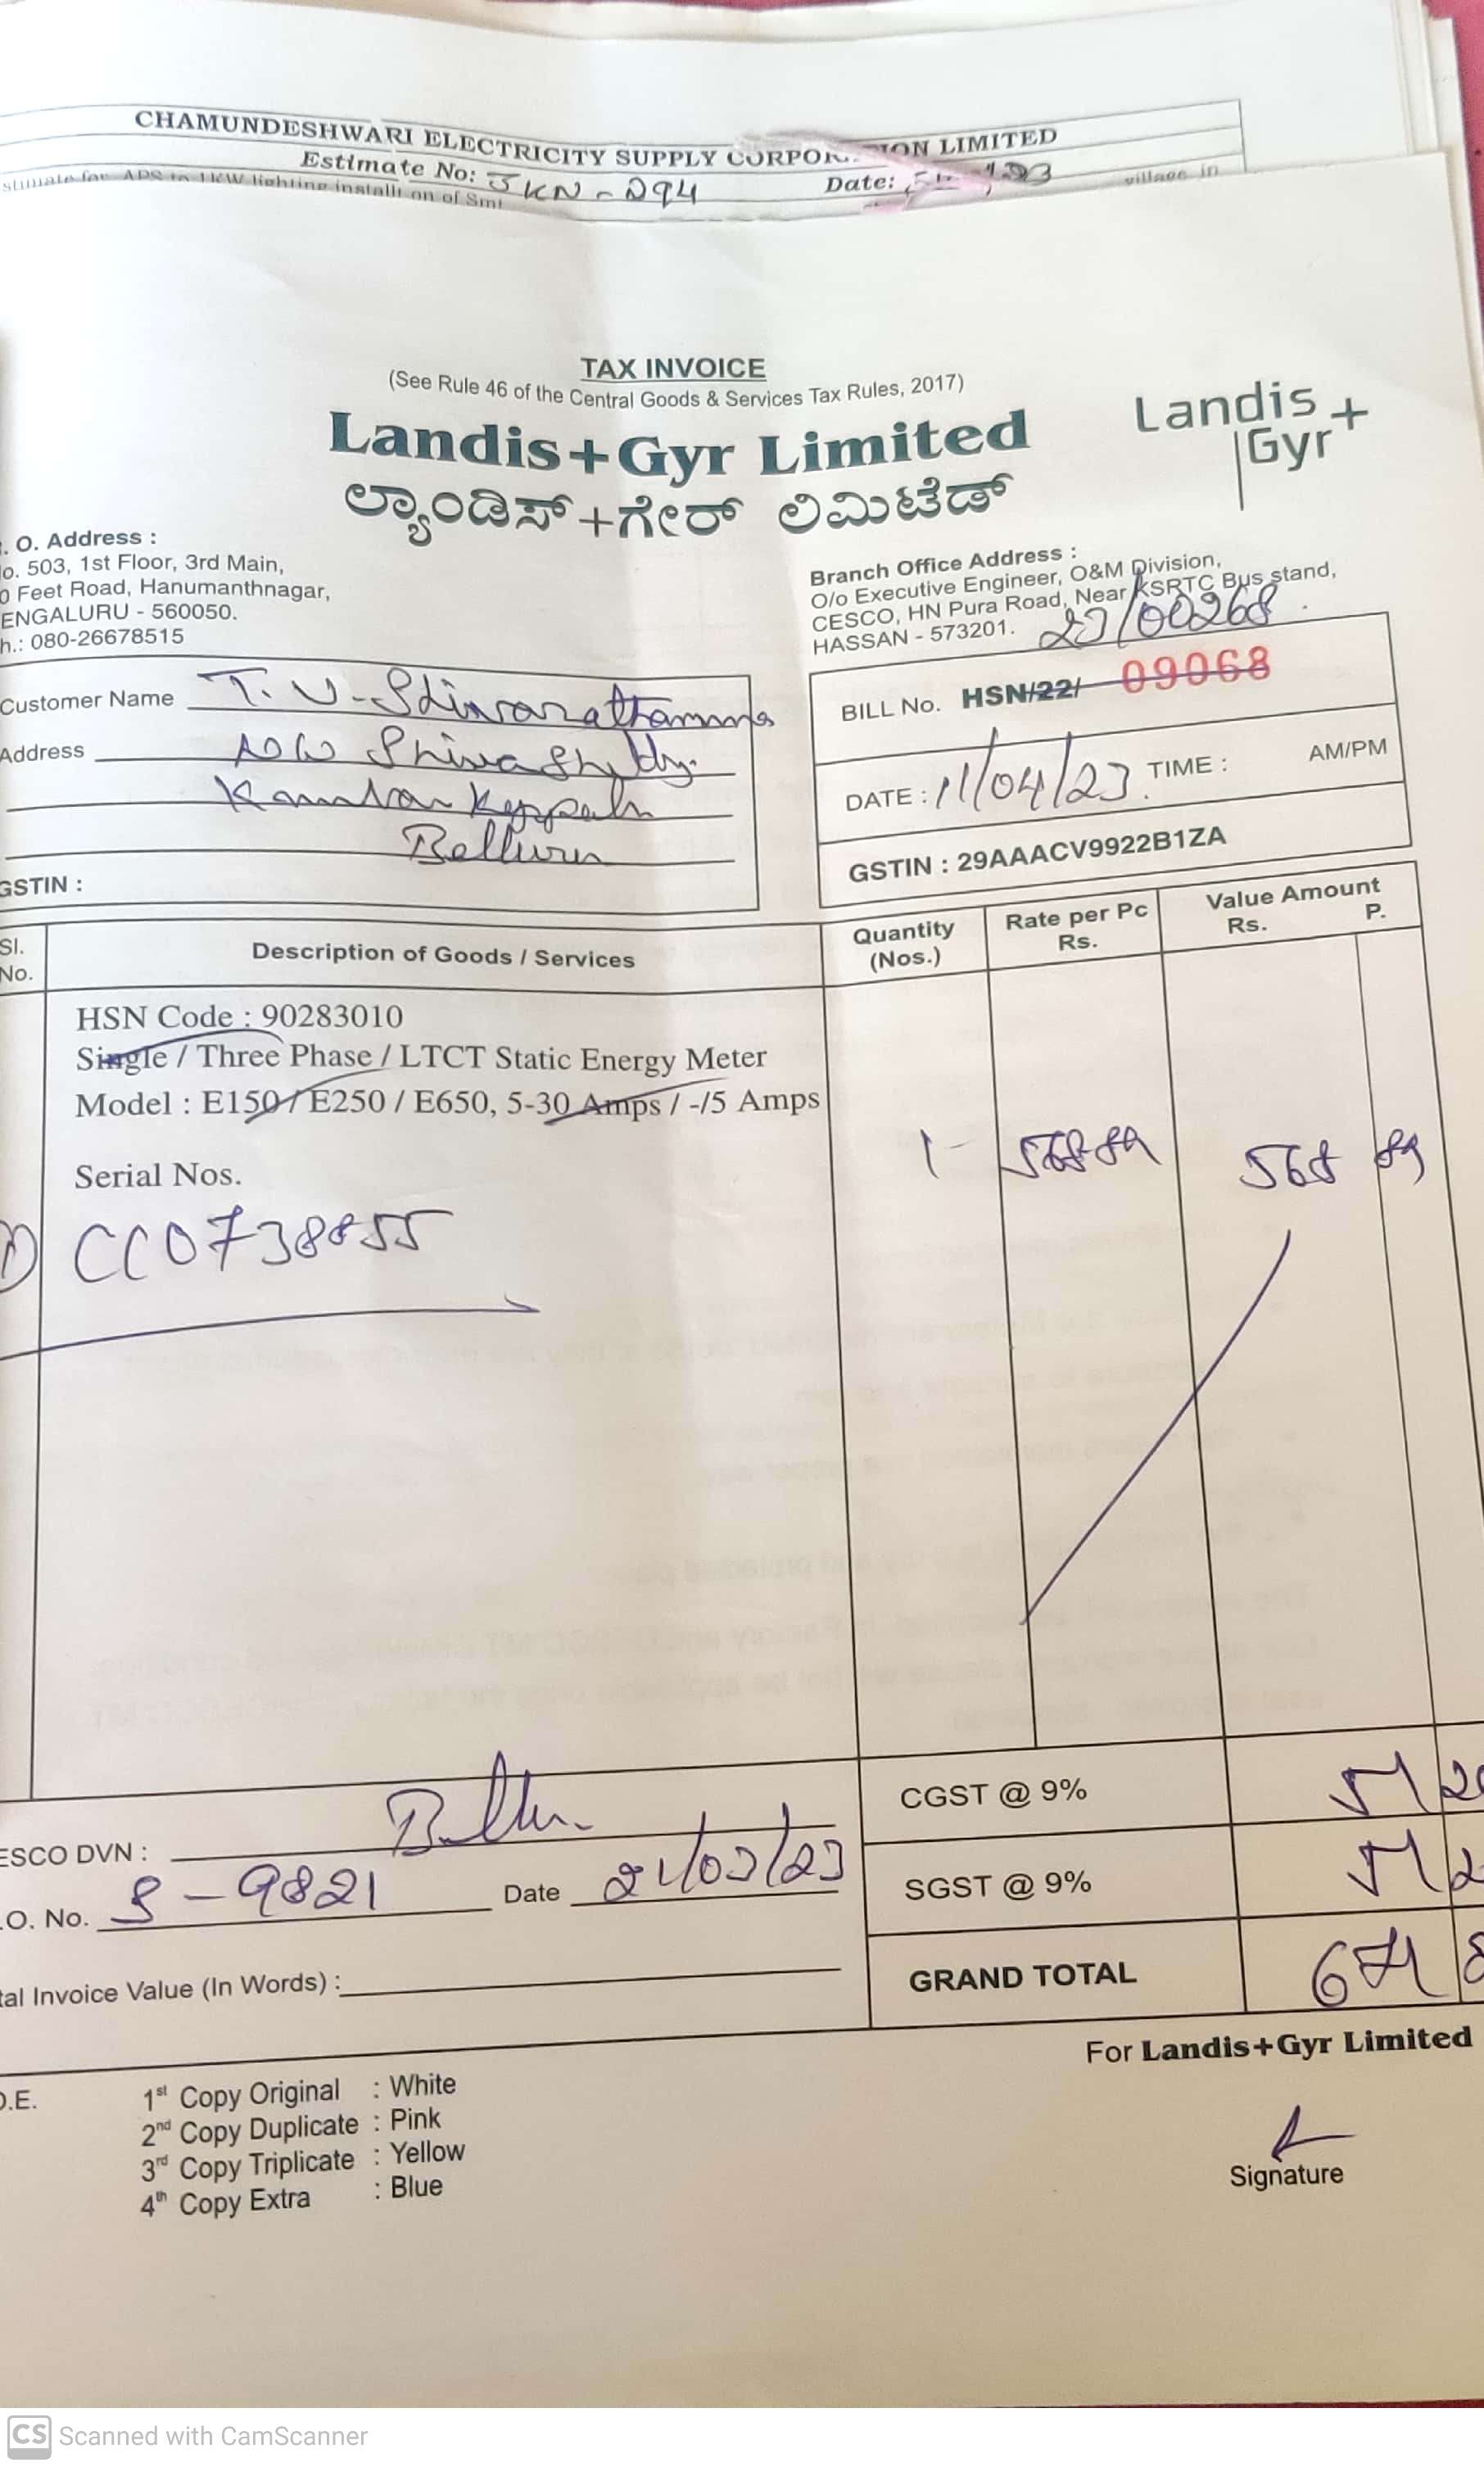 CHAMUNDESHWARI ELECTRICITY SUPPLY CORPOR ION LIMITED
Estimate No: JKN-294 Date:
stimate for APS to 1KW lighting installi on of Smt village in
TAX INVOICE
(See Rule 46 of the Central Goods & Services Tax Rules, 2017)
Landis+Gyr Limited
ಲ್ಯಾಂಡಿಸ್+ಗೇರ್ ಲಿಮಿಟೆಡ್
Landis+
Gyr
. O. Address :
o. 503, 1st Floor, 3rd Main,
0 Feet Road, Hanumanthnagar,
ENGALURU - 560050.
h.: 080-26678515
Branch Office Address :
O/o Executive Engineer, O&M Division,
CESCO, HN Pura Road, Near KSRTC Bus stand,
HASSAN - 573201.
23/00268
Customer Name T.
Address
Kambar
Bellur
GSTIN :
BILL No. HSN/22/ 09068
DATE : 11/04/23 TIME : AM/PM
GSTIN : 29AAACV9922B1ZA
Sl. No.
Description of Goods / Services
Quantity (Nos.)
Rate per Pc Rs.
Value Amount Rs. P.
HSN Code : 90283010
Single / Three Phase / LTCT Static Energy Meter
Model : E150 / E250 / E650, 5-30 Amps / -/5 Amps
1 568-89 568 89
Serial Nos.
1) CC0738855
ESCO DVN :
CGST @ 9% 51
.O. No. S-9821 Date 21/03/23
SGST @ 9% 51
tal Invoice Value (In Words) :
GRAND TOTAL 671
For Landis+Gyr Limited
O.E.
1st Copy Original : White
2nd Copy Duplicate : Pink
3rd Copy Triplicate : Yellow
4th Copy Extra : Blue
Signature
CS Scanned with CamScanner